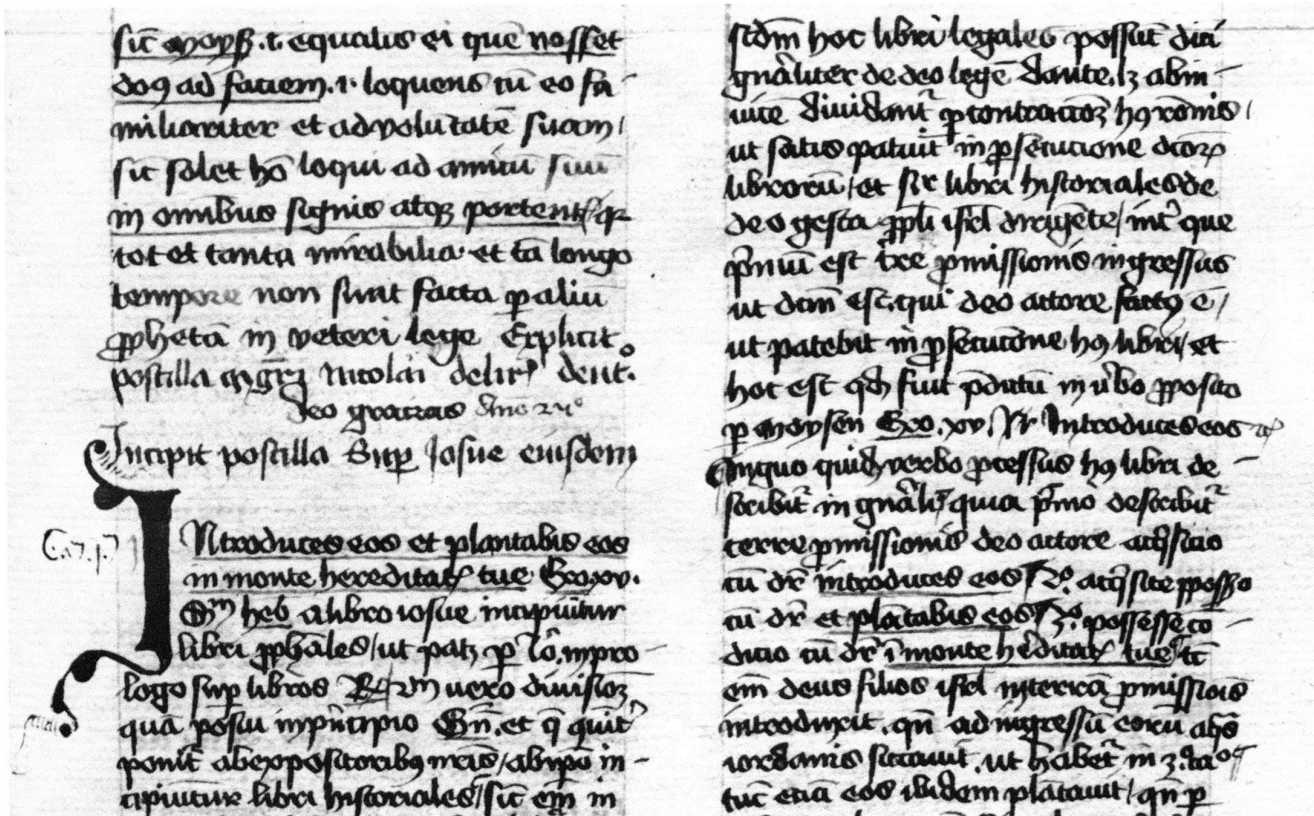 sic̄ moyses .i. equalis ei quē nosset
dn̄s ad faciem .i. loquens cū eo fa
miliariter et ad volūtatē suam /
sic̄ solet hō loqui ad amicū suū
in omnibus signis atqꝫ portentꝭ qꝛ
tot et tanta mirabilia et tā longo
tempore non sunt facta ꝑ aliū
ꝓphetā in veteri lege Explicit
postilla mg̅ri Nicolai de lirꝭ deut.º
deo gracias
Incipit postilla Sup̱ Josue eiusdem
INtroduces eos et plantabis eos
in monte hereditatꝭ tue Exo. xv.
Sm̄ heb̄ a libro iosue incipiūtur
libri ꝓphāles / ut patꝫ ꝑ Io. in pro
logo sup̱ libros Rꝭ / Sm̄ vero divisionꝫ
quā posui in pͥncipio Gn̄. et q̄ quīt
ponit̄ ab expositoribꝰ nr̄is / ab ip̄o in-
cipiuntur libri historiales / sic̄ em̄ in
scd̄m hoc libri legales possūt dici
gn̄aliter de deo legē dante. lꝫ abin-
vicē dividant̄ ꝑ contraccōꝫ hꝰ rōnis /
ut satis patuit in ꝓsecucione dc̄orꝝ
librorū / et sic̄ libri historiales de
deo gesta ꝓpli isrl̄ dirigēte / int̄ que
pͥmū est tr̄re ꝓmissionis ingressus
ut dcm̄ est. qui deo actore factꝰ ē /
ut patebit in ꝓsecucōne hꝰ libri / et
hoc est qd̄ fuit p̄dictū in v̄bo ꝓposito
ꝑ moysen Exo. xv. Introduces eos
In quo quidē verbo ꝓcessus hꝰ libri de-
scribit̄ in gn̄ali / quia pͥmo describit̄
terre ꝓmissionis deo actore acq̄sicio
cū dr̄ introduces eos / 2º. acq̄site possessio
cū dr̄ et plātabis eos / 3º. possesse co-
dicio cū dr̄ ī monte hēditatꝭ tue / tc̄
em̄ deus filios isrl̄ in terrā ꝓmissiōis
introduxit. qn̄ ad ingressū eorū aq̄s
iordanis siccavit. ut habet̄ in 3. caº
tūc etiā eos ibidem plātavit / qn̄ ꝑ